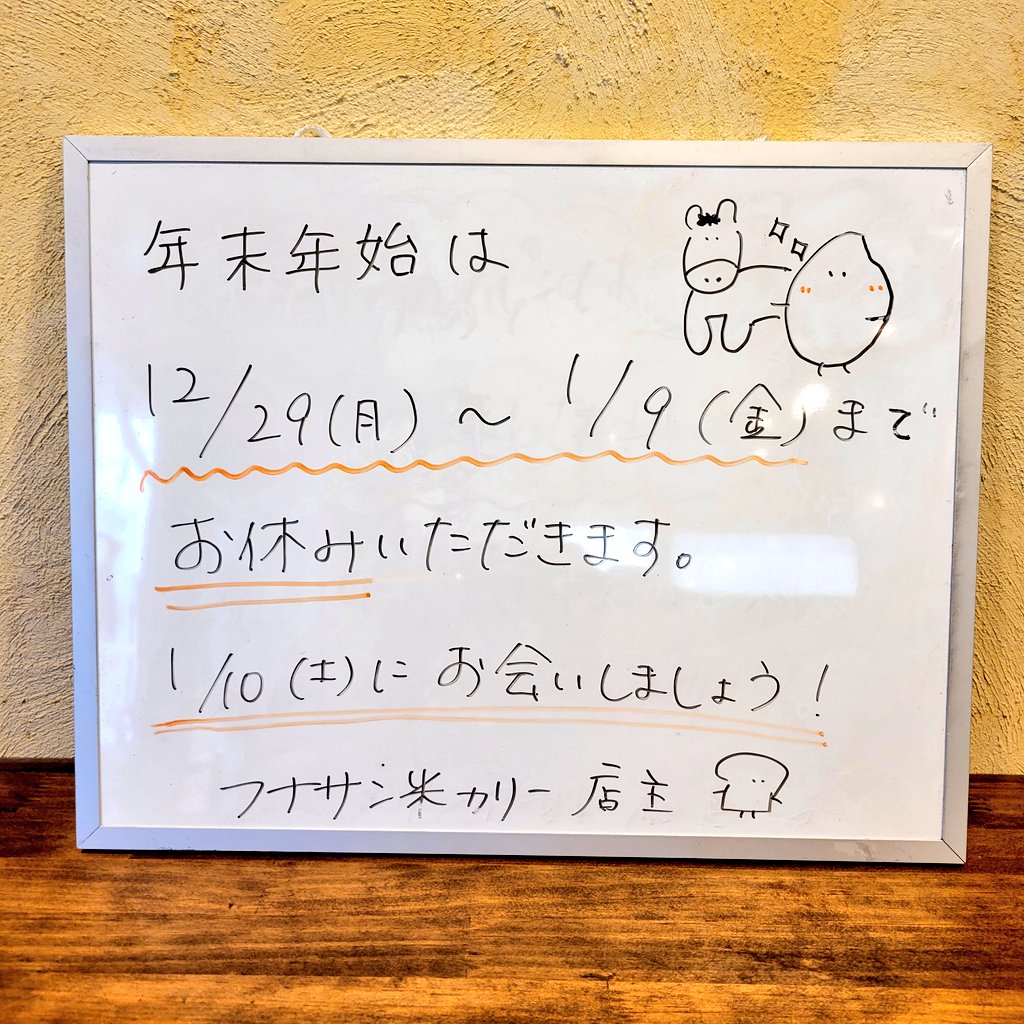 年末年始は
12/29(月)～1/9(金)まで
お休みいただきます。
1/10(土)にお会いしましょう!
フナサン米カリー店主